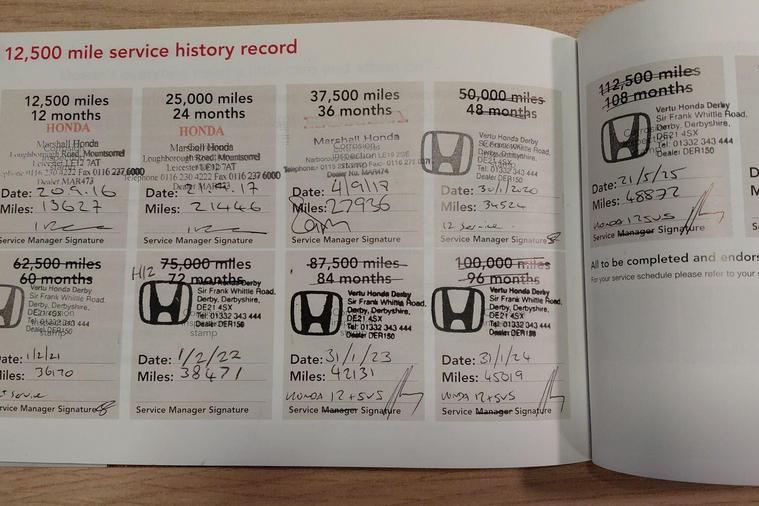 12,500 mile service history record
12,500 miles
12 months
HONDA
Marshall Honda
Loughborough Road, Mountsorrel
Leicester LE12 7AT
Telephone 0116 230 4222 Fax 0116 237 6000
Dealer MAR473
Date: 20.9.16
Miles: 13627
Service Manager Signature
25,000 miles
24 months
HONDA
Marshall Honda
Loughborough Road, Mountsorrel
Leicester LE12 7AT
Telephone 0116 230 4222 Fax 0116 237 6000
Dealer MAR473
Date:
Miles: 21446
Service Manager Signature
37,500 miles
36 months
Marshall Honda
Dealer No. MAR474
Date: 4/9/17
Miles: 27936
Service Manager Signature
50,000 miles
48 months
Vertu Honda Derby
Sir Frank Whittle Road,
Derby, Derbyshire,
DE21 4SX
Tel: 01332 343 444
Dealer DER150
Date: 30/1/2020
Miles: 34524
12 Service
Service Manager Signature
62,500 miles
60 months
Vertu Honda Derby
Sir Frank Whittle Road,
Derby, Derbyshire,
DE21 4SX
Tel: 01332 343 444
Dealer DER150
Date: 1/2/21
Miles: 36170
Service
Service Manager Signature
H12
75,000 miles
72 months
Vertu Honda Derby
Sir Frank Whittle Road,
Derby, Derbyshire,
DE21 4SX
Tel: 01332 343 444
Dealer DER150
stamp
Date: 1/2/22
Miles: 38471
Service Manager Signature
87,500 miles
84 months
Vertu Honda Derby
Sir Frank Whittle Road,
Derby, Derbyshire,
DE21 4SX
Tel: 01332 343 444
Dealer DER150
stamp
Date: 31/1/23
Miles: 42131
HONDA 12+SVS
Service Manager Signature
100,000 miles
96 months
Vertu Honda Derby
Sir Frank Whittle Road,
Derby, Derbyshire,
DE21 4SX
Tel: 01332 343 444
Dealer DER150
stamp
Date: 31/1/24
Miles: 45019
HONDA 12+SVS
Service Manager Signature
112,500 miles
108 months
Vertu Honda Derby
Sir Frank Whittle Road,
Derby, Derbyshire,
DE21 4SX
Tel: 01332 343 444
Dealer DER150
Date: 21/5/25
Miles: 48872
HONDA 12SVS
Service Manager Signature
All to be completed and endors
For your service schedule please refer to your s